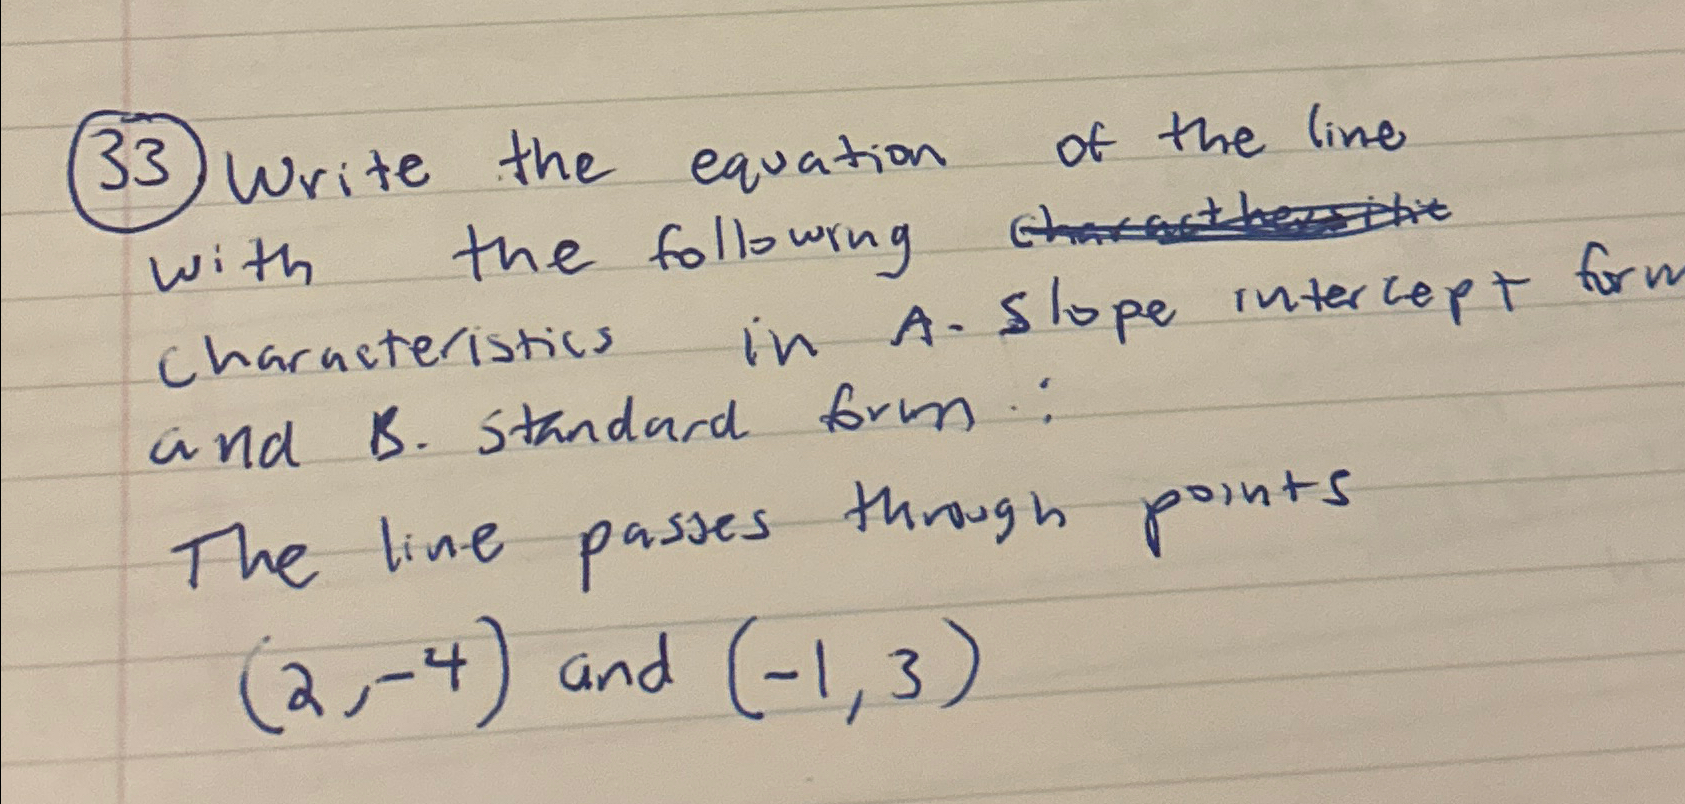 33 Write the equation of the line
with the following
characteristics in A. Slope intercept form
and B. standard form:
The line passes through points
(2,-4) and (-1,3)